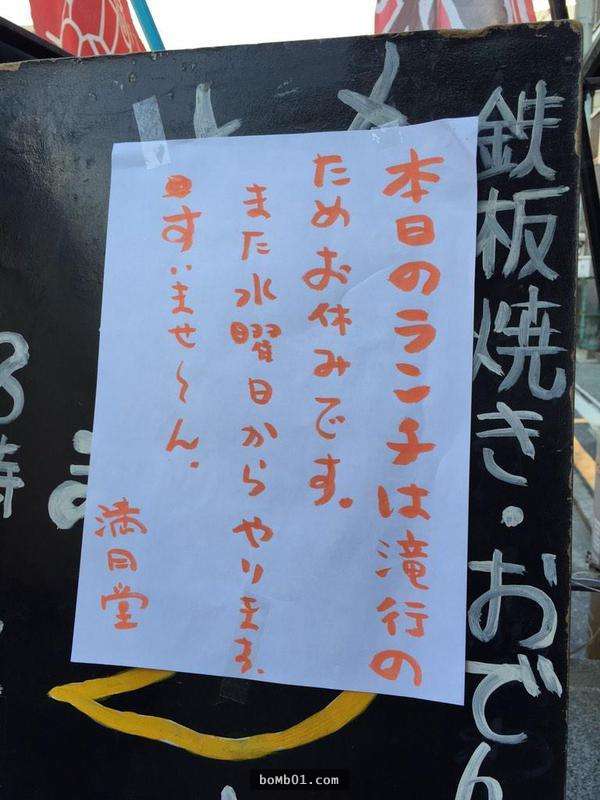 鉄板焼き・おでん
本日のランチは滝行の
ためお休みです。
また水曜日からやります。
すいませ〜ん。
満月堂
boMb01.com